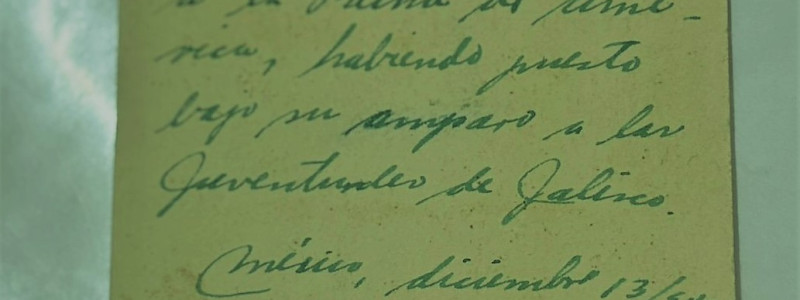 a la Reina de Amé-
rica, habiendo puesto
bajo su amparo a las
Juventudes de Jalisco.
México, diciembre 13/